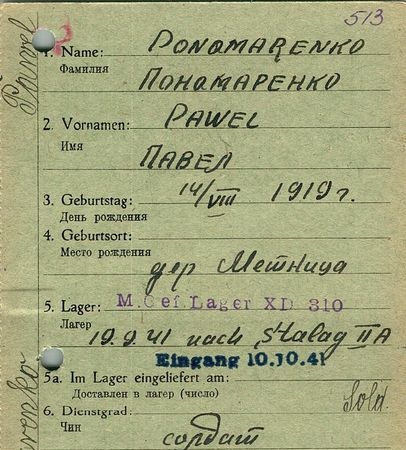 513
1. Name: PONOMARENKO
Фамилия ПОНОМАРЕНКО
2. Vornamen: PAWEL
Имя ПАВЕЛ
3. Geburtstag: 14/VIII 1919 г.
День рождения
4. Geburtsort:
Место рождения
дер Метница
5. Lager: M.Gef Lager XD 310
Лагерь 19.9.41 nach Stalag II A
Eingang 10.10.41
5a. Im Lager eingeliefert am:
Доставлен в лагерь (число)
Sold.
6. Dienstgrad:
Чин солдат